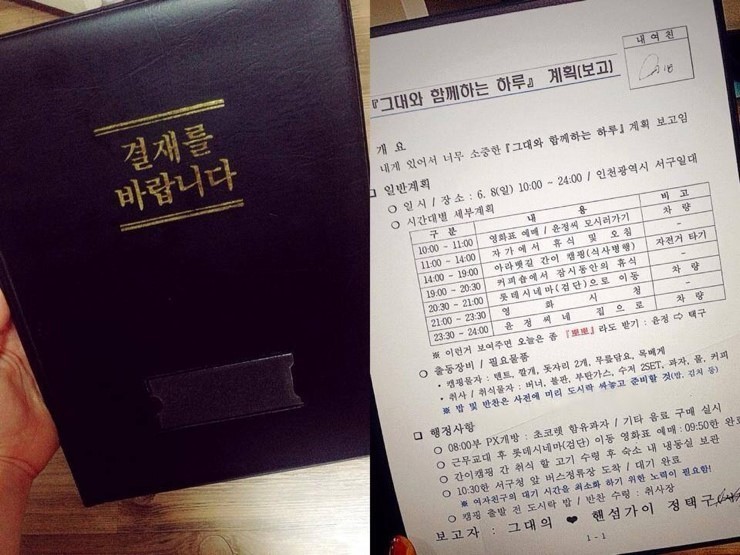 결재를
바랍니다
내 여 친
『그대와 함께하는 하루』 계획(보고)
개 요
내게 있어서 너무 소중한 『그대와 함께하는 하루』 계획 보고임
□ 일반계획
○ 일시 / 장소 : 6. 8(일) 10:00 ~ 24:00 / 인천광역시 서구일대
○ 시간대별 세부계획
구 분 내 용 비 고
10:00 - 11:00 영화표 예매 / 윤정씨 모시러가기 차 량
11:00 - 14:00 자가에서 휴식 및 오침 -
14:00 - 19:00 아라뱃길 간이 캠핑(식사병행) 자전거 타기
19:00 - 20:30 커피숍에서 잠시동안의 휴식 -
20:30 - 21:00 롯데시네마(검단)으로 이동 차 량
21:00 - 23:30 영 화 시 청 -
23:30 - 24:00 윤 정 씨 네 집 으 로 차 량
※ 이런거 보여주면 오늘은 좀 『뽀뽀』 라도 받기 : 윤정 ⇨ 택구
○ 출동장비 / 필요물품
• 캠핑물자 : 텐트, 깔개, 돗자리 2개, 무릎담요, 목베게
• 취사 / 취식물자 : 버너, 불판, 부탄가스, 수저 2SET, 과자, 물, 커피
※ 밥 및 반찬은 사전에 미리 도시락 싸놓고 준비할 것(밥, 김치 등)
□ 행정사항
○ 08:00부 PX개방 : 초코렛 함유과자 / 기타 음료 구매 실시
○ 근무교대 후 롯데시네마(검단) 이동 영화표 예매 : 09:50한 완료
○ 간이캠핑 간 취식 할 고기 수령 후 숙소 내 냉동실 보관
○ 10:30한 서구청 앞 버스정류장 도착 / 대기 완료
※ 여자친구의 대기 시간을 최소화 하기 위한 노력이 필요함!
○ 캠핑 출발 전 도시락 밥 / 반찬 수령 : 취사장
보고자 : 그대의 ♥ 핸섬가이 정택구
1 - 1